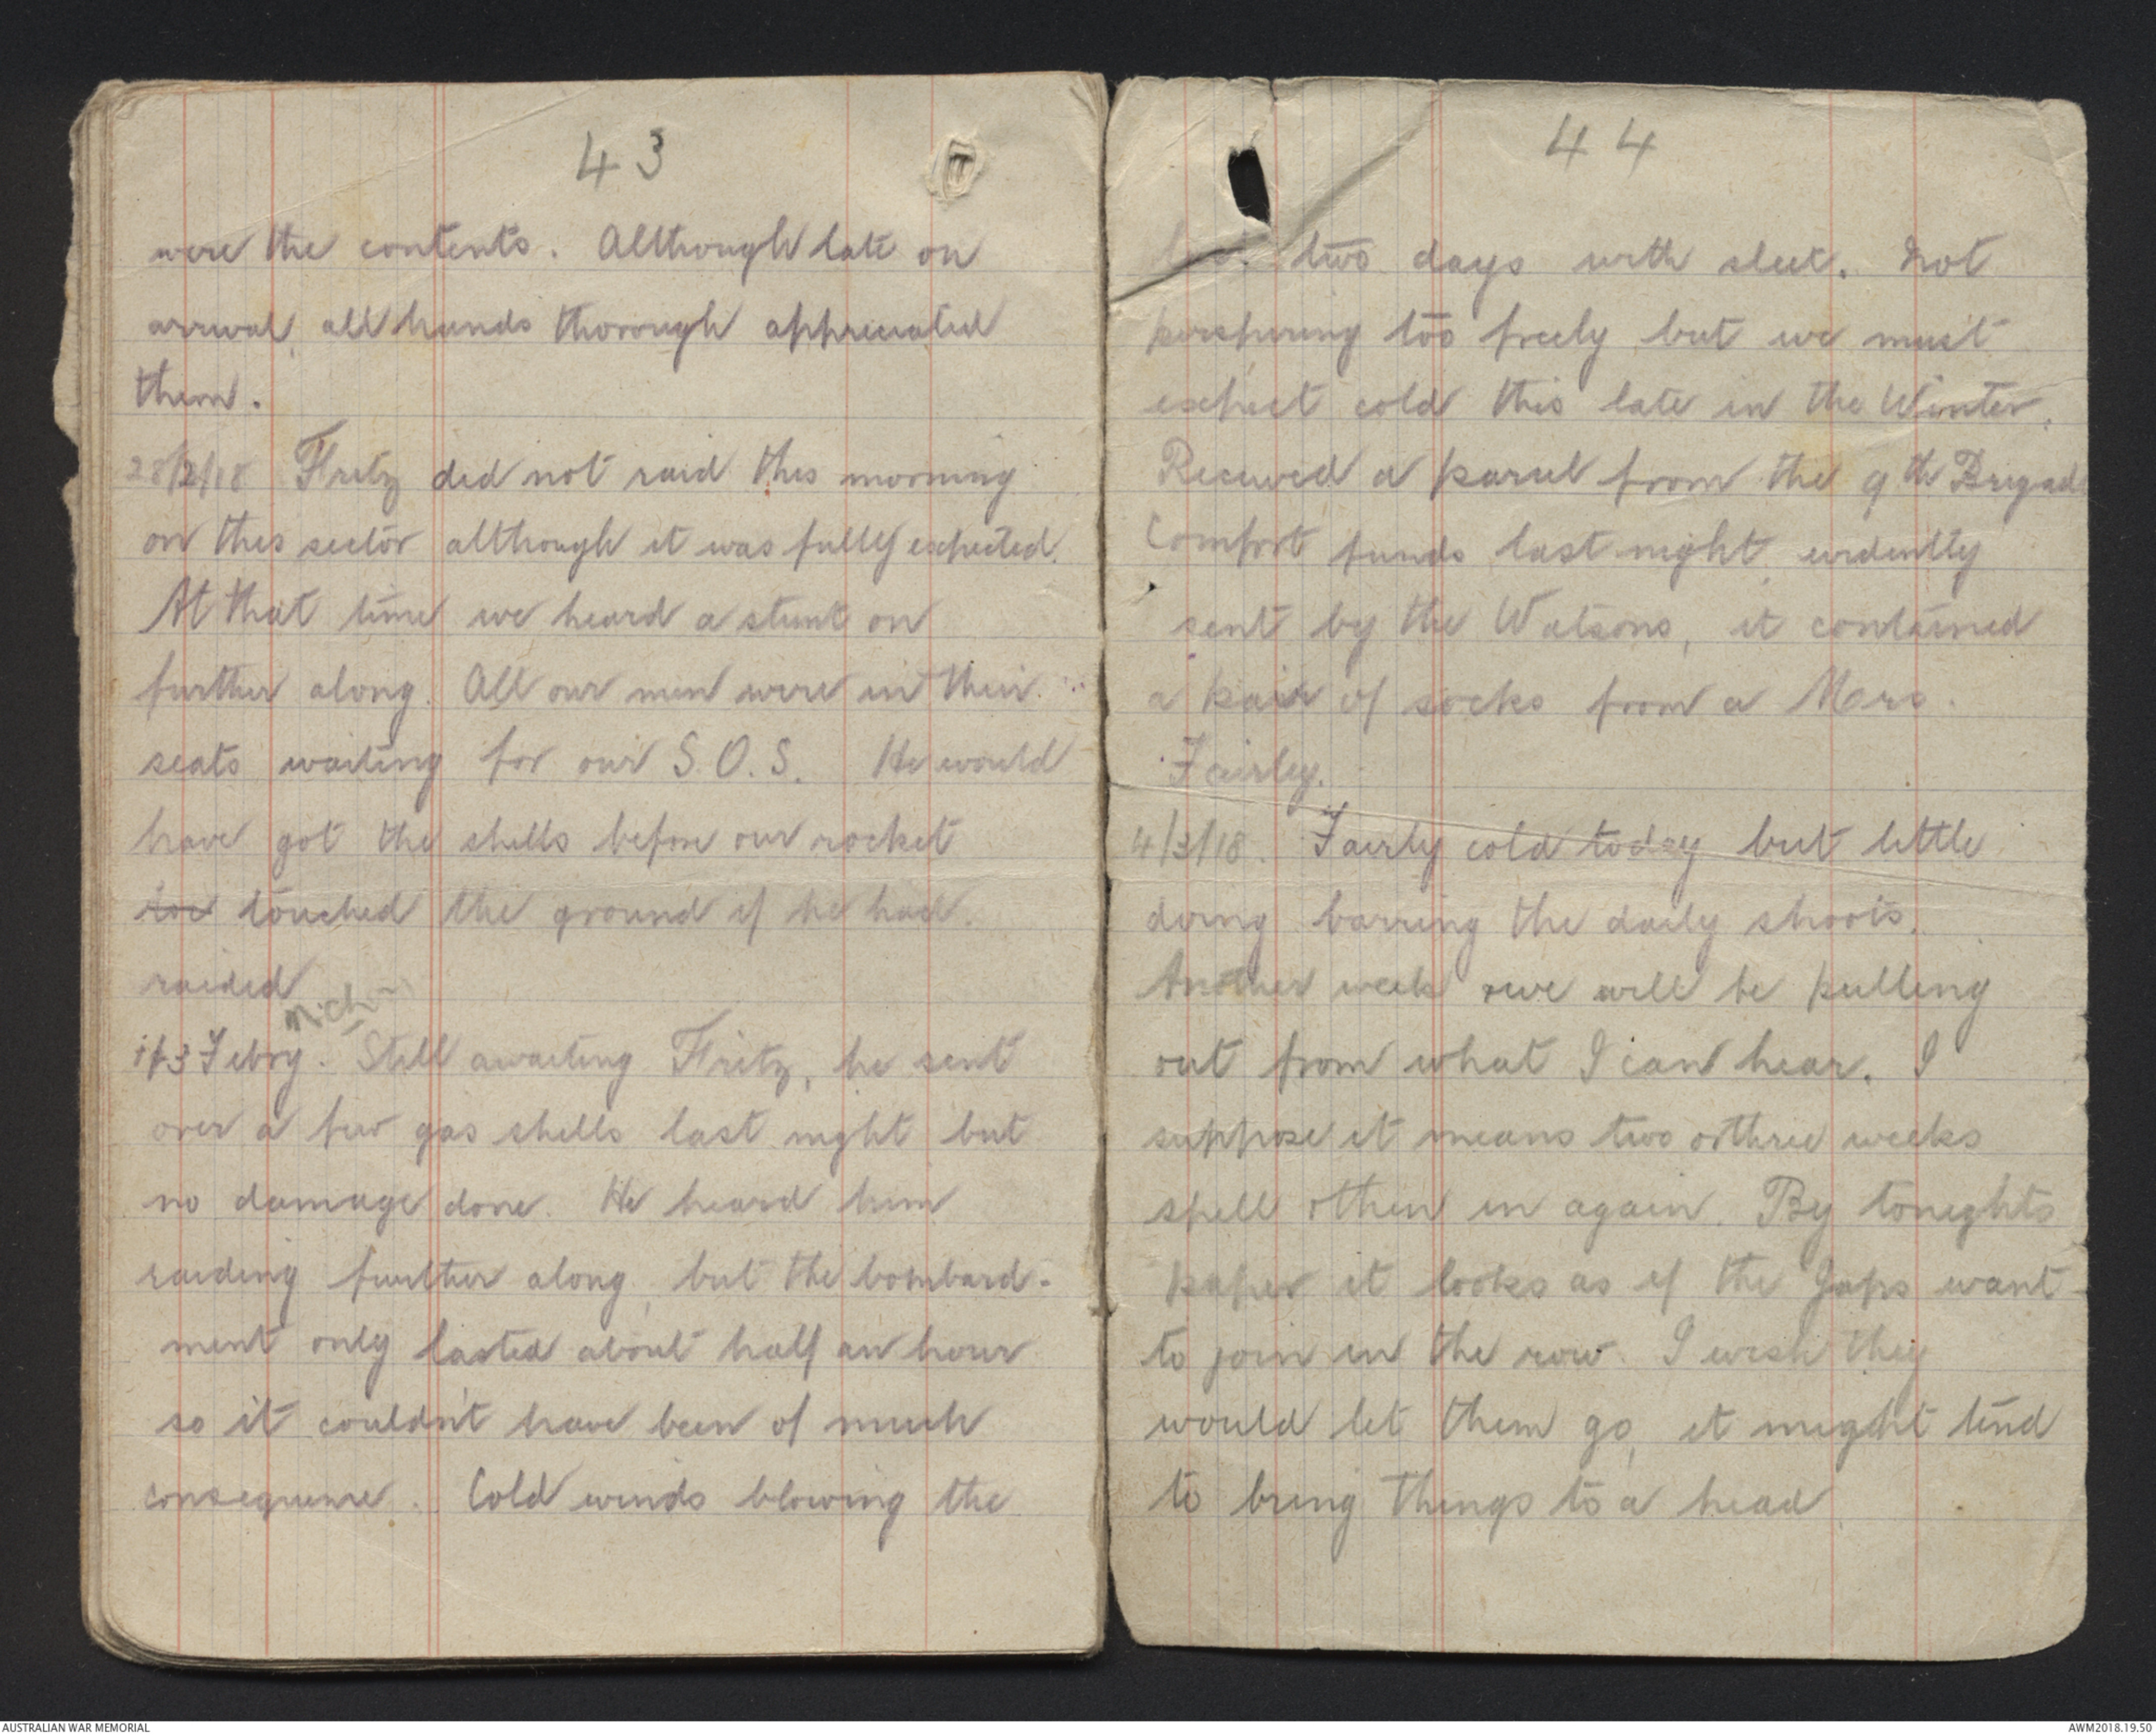 43
were the contents. Although late on
arrival, all hands thorough appreciated
them.
28/2/18 Fritz did not raid this morning
on this sector although it was fully expected.
At that time we heard a stunt on
further along. All our men were in their
seats waiting for our S.O.S. He would
have got the shells before our rocket
touched the ground if he had.
raided
March
3 Febry. Still awaiting Fritz, he sent
over a few gas shells last night but
no damage done. We heard him
raiding further along, but the bombard-
ment only lasted about half an hour
so it couldn't have been of much
consequence. Cold winds blowing the
44
last two days with sleet. Not
perspiring too freely but we must
expect cold this late in the Winter.
Received a parcel from the 9th Brigade
Comfort funds last night, evidently
sent by the Watsons, it contained
a pair of socks from a Mrs.
Fairley.
4/3/18. Fairly cold today but little
doing barring the daily shoots.
Another week & we will be pulling
out from what I can hear. I
suppose it means two or three weeks
spell & then in again. By tonights
paper it looks as if the Japs want
to join in the row. I wish they
would let them go, it might tend
to bring things to a head
AUSTRALIAN WAR MEMORIAL
AWM2018.19.50